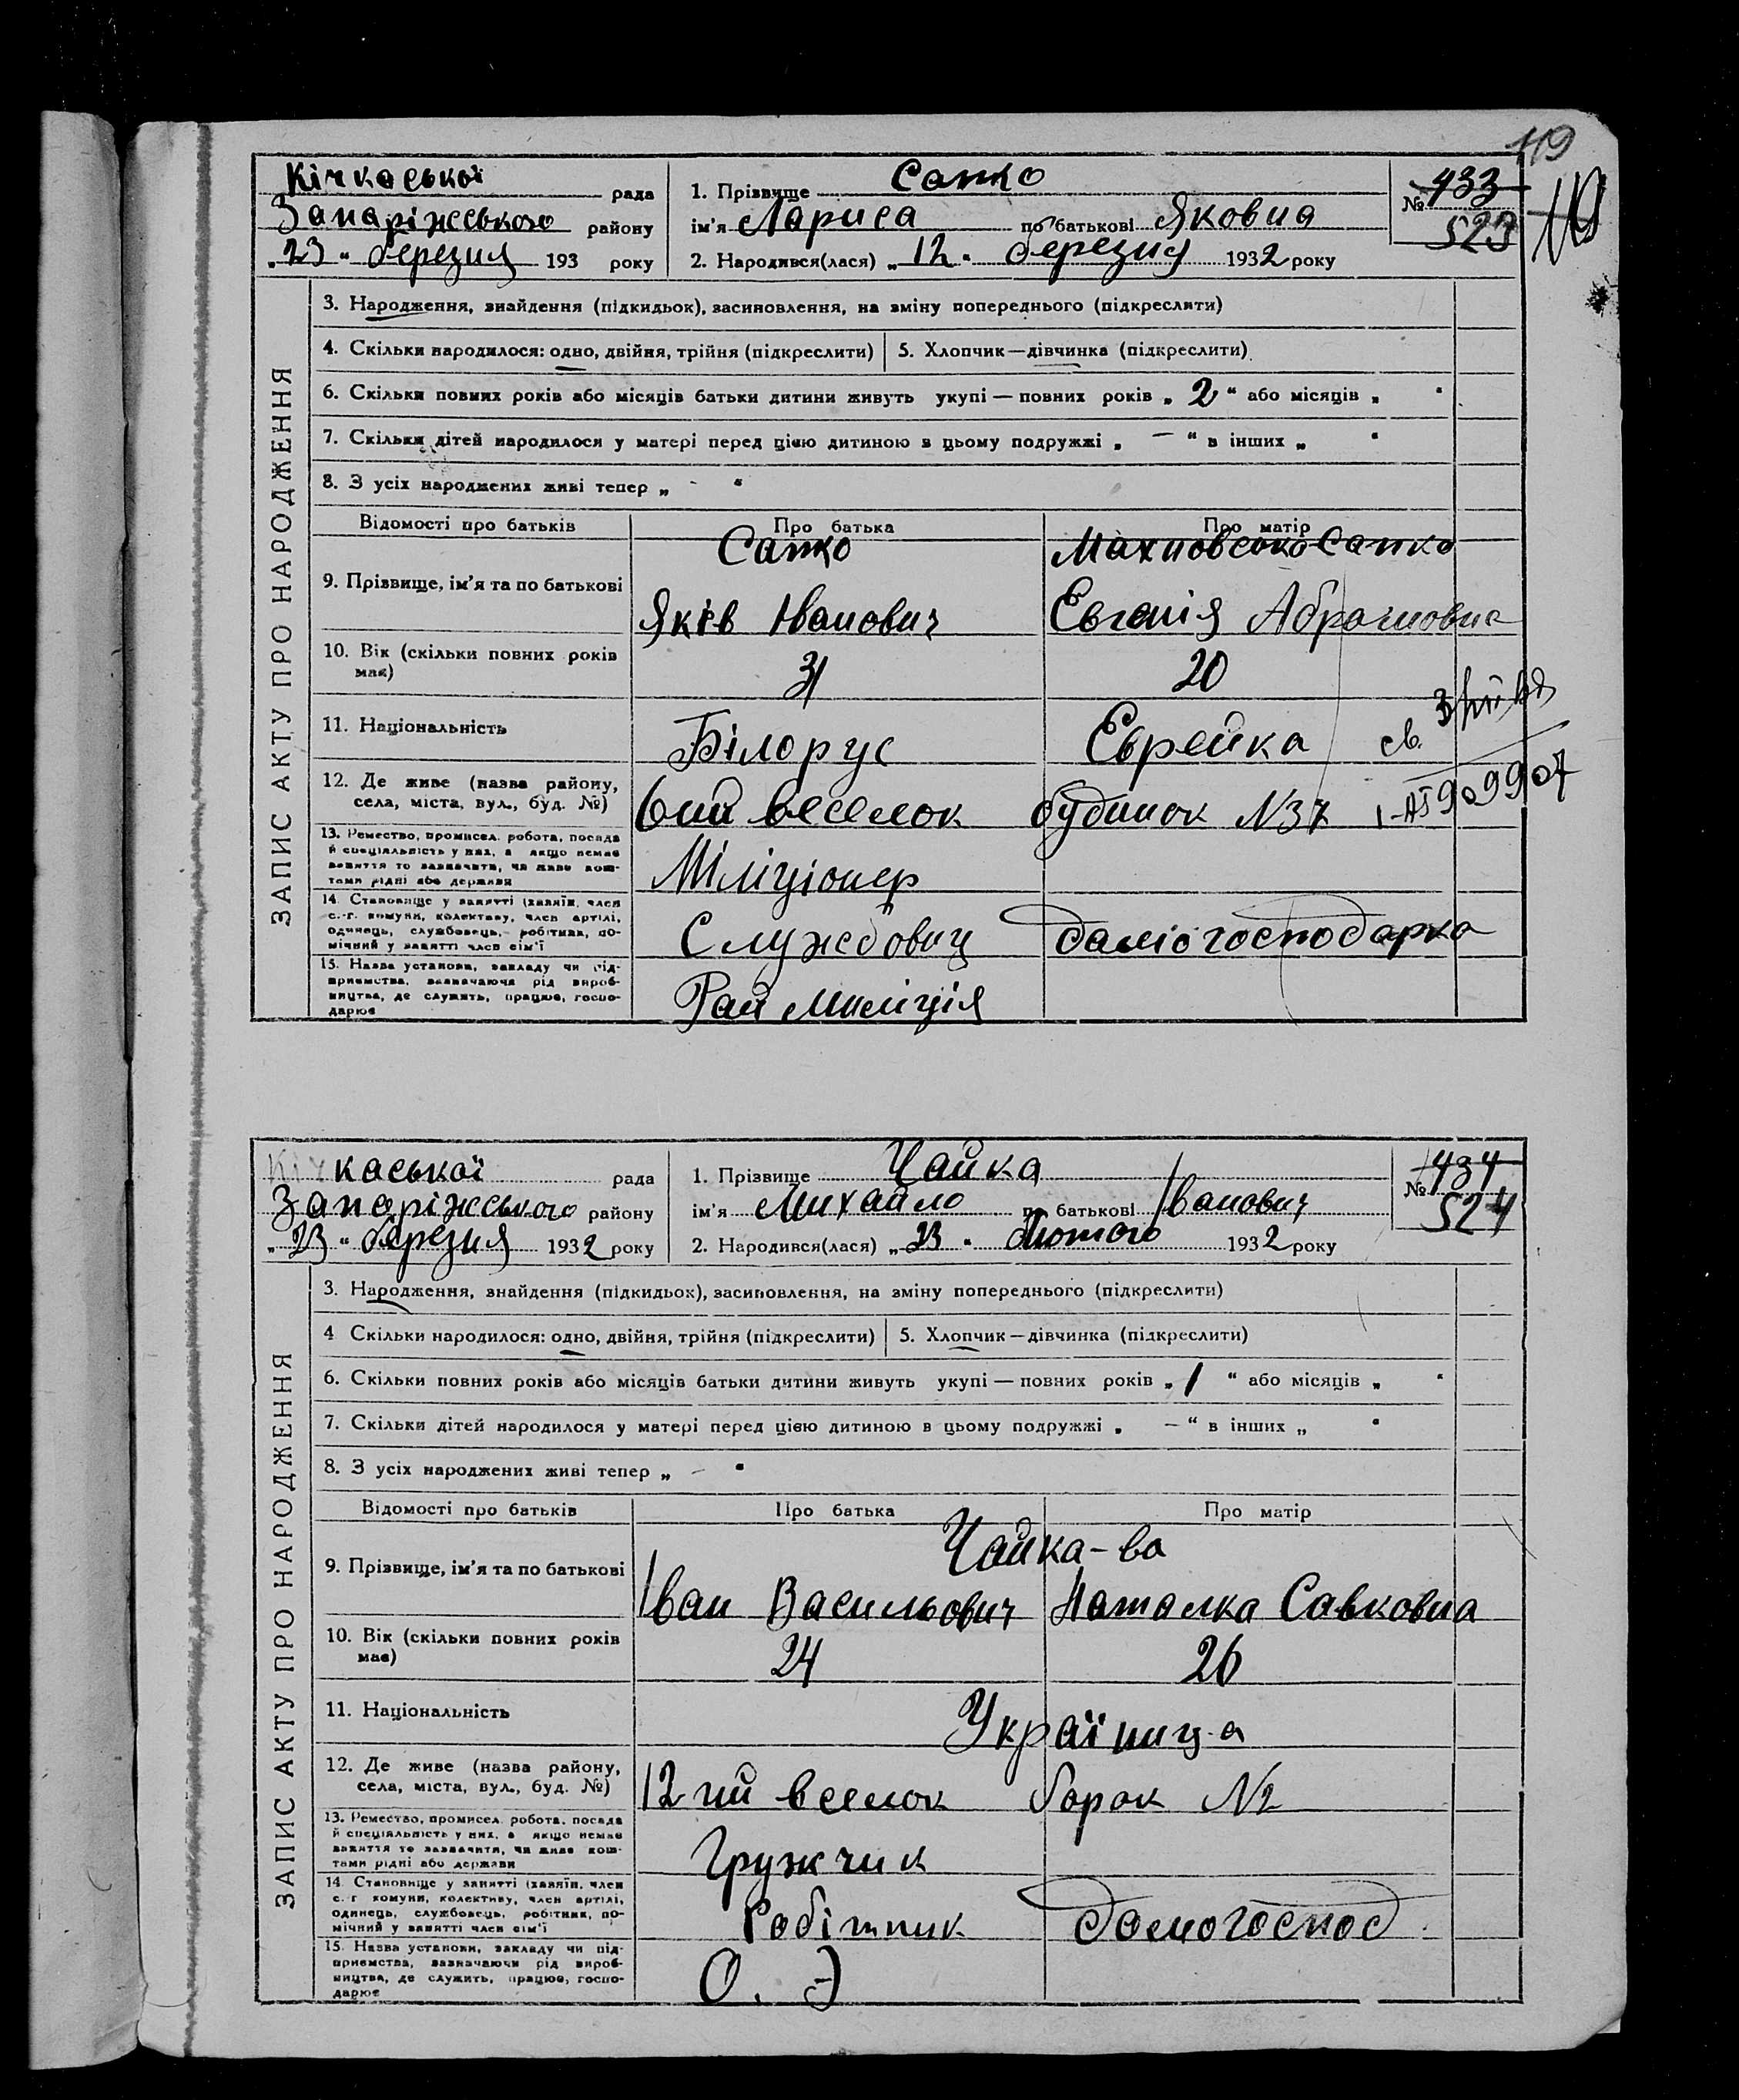 119
Кічкаської рада
Запаріжського району
„23" березня 193 року
1. Прізвище Сапко
ім'я Лариса по батькові Яковна
2. Народився(лася) „12" березня 1932 року
№ 433
523
3. Народження, знайдення (підкидьок), засиновлення, на зміну попереднього (підкреслити)
4. Скільки народилося: одно, двійня, трійня (підкреслити) 5. Хлопчик—дівчинка (підкреслити)
6. Скільки повних років або місяців батьки дитини живуть укупі — повних років „ 2 " або місяців „ "
7. Скільки дітей народилося у матері перед цією дитиною в цьому подружжі „ — " в інших „ "
8. З усіх народжених живі тепер „ - "
ЗАПИС АКТУ ПРО НАРОДЖЕННЯ
Відомості про батьків Про батька Про матір
Сапко Махновська-Сапко
9. Прізвище, ім'я та по батькові
Яків Іванович Євгенія Абрамовна
10. Вік (скільки повних років має) 31 20
11. Національність Білорус Єврейка
св.
12. Де живе (назва району, села, міста, вул., буд. №) 6ий веселок будинок №37
13. Ремество, промисел, робота, посада й спеціальність у них, а якщо немає заняття то зазначити, чи живе коштами рідні або держави Міліціонер
14. Становище у занятті (хазяїн, член с.-г. комуни, колективу, член артілі, одинець, службовець, робітник, помічний у занятті член сім'ї Службовиц даміогосподарка
15. Назва установи, закладу чи підприємства, зазначаючи рід виробництва, де служить, працює, господарює Рай миліція
каської рада
Запаріжського району
„23" березня 1932 року
1. Прізвище Чайка
ім'я Михайло по батькові Іванович
2. Народився(лася) „23" Лютого 1932 року
№ 434
524
3. Народження, знайдення (підкидьок), засиновлення, на зміну попереднього (підкреслити)
4 Скільки народилося: одно, двійня, трійня (підкреслити) 5. Хлопчик—дівчинка (підкреслити)
6. Скільки повних років або місяців батьки дитини живуть укупі — повних років „ 1 " або місяців „ "
7. Скільки дітей народилося у матері перед цією дитиною в цьому подружжі „ — " в інших „ "
8. З усіх народжених живі тепер „ - "
ЗАПИС АКТУ ПРО НАРОДЖЕННЯ
Відомості про батьків Про батька Про матір
Чайка-ва
9. Прізвище, ім'я та по батькові
Іван Васильович Наталка Савковна
10. Вік (скільки повних років має) 24 26
11. Національність Україница
12. Де живе (назва району, села, міста, вул., буд. №) 12 ий вселок барак №2
13. Ремество, промисел, робота, посада й спеціальність у них, а якщо немає заняття то зазначити, чи живе коштами рідні або держави Гружчик
14. Становище у занятті (хазяїн, член с.-г комуни, колективу, член артілі, одинець, службовець, робітник, помічний у занятті член сім'ї Робітник домогоспод
15. Назва установи, закладу чи підприємства, зазначаючи рід виробництва, де служить, працює, господарює О. Э